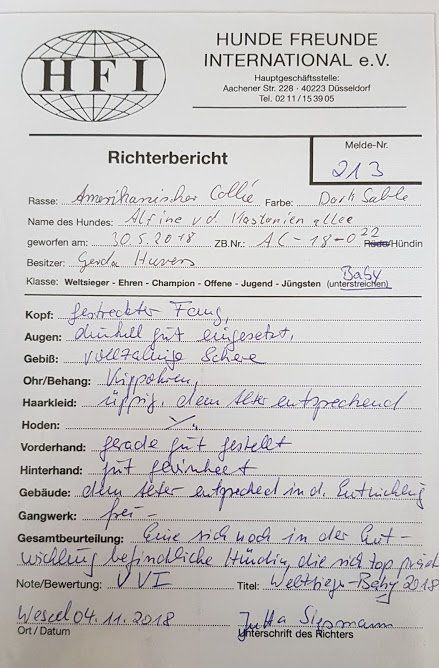 HFI
HUNDE FREUNDE
INTERNATIONAL e.V.
Hauptgeschäftsstelle:
Aachener Str. 228 · 40223 Düsseldorf
Tel. 02 11 / 15 39 05
Melde-Nr.
Richterbericht
213
Rasse: Amerikanischer Collie Farbe: Dark Sable
Name des Hundes: Alfine v d Kastanien allee
geworfen am: 30.5.2018 ZB.Nr.: AC-18-022 Rüde/Hündin
Besitzer: Gerda
Baby
Klasse: Weltsieger - Ehren - Champion - Offene - Jugend - Jüngsten (unterstreichen)
Kopf: gestreckter Fang,
Augen: dunkel gut eingesetzt,
Gebiß: vollzahnige Schere
Ohr/Behang: Kippohren,
Haarkleid: üppig, dem Alter entsprechend
Hoden: ./.
Vorderhand: gerade gut gestellt
Hinterhand: gut gewinkelt
Gebäude: dem Alter entsprechend in d. Entwicklung
Gangwerk: frei -
Gesamtbeurteilung: Eine sich noch in der Ent-
wicklung befindliche Hündin, die sich top
Note/Bewertung: V V I Titel: Weltsieger-Baby 2018
Wesel 04.11.2018 Jutta
Ort / Datum Unterschrift des Richters